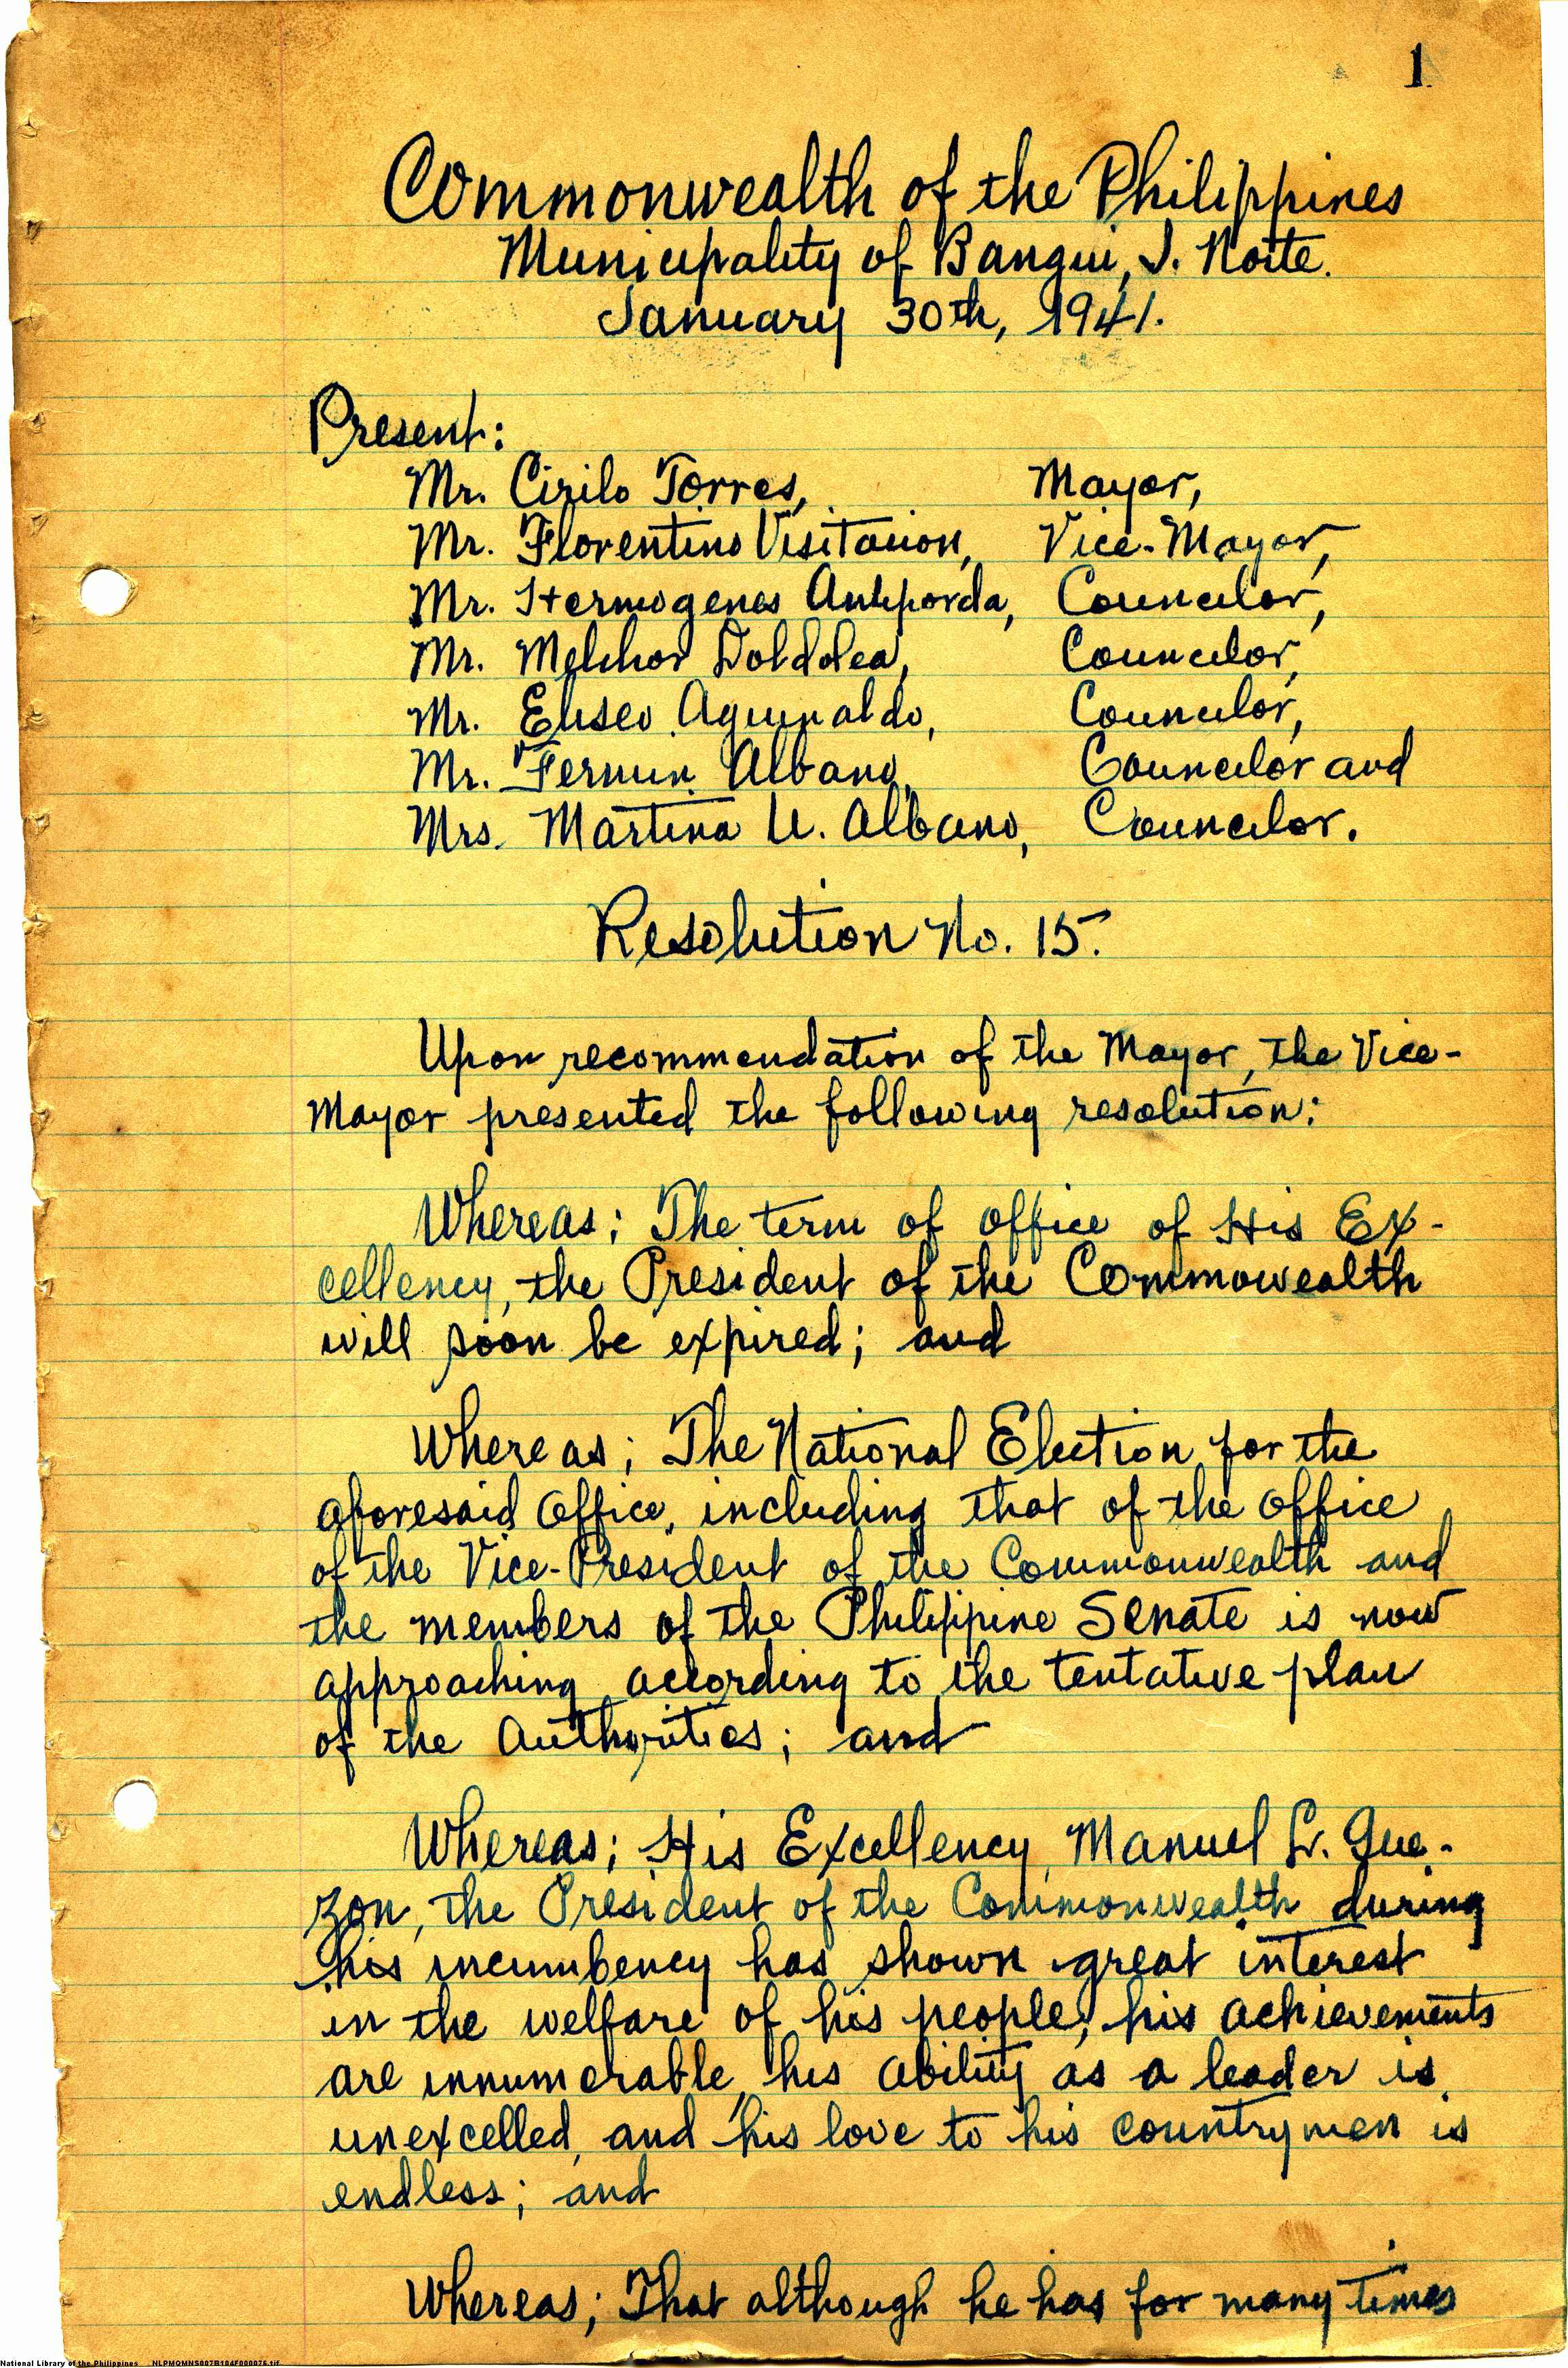 1
Commonwealth of the Philippines
Municipality of Bangui, I. Norte.
January 30th, 1941.
Present:
Mr. Cirilo Torres, Mayor,
Mr. Florentino Visitacion, Vice-Mayor,
Mr. Hermogenes Antiporda, Councilor,
Mr. Melchor Doldolea, Councilor,
Mr. Eliseo Aguinaldo, Councilor,
Mr. Fermin Albano, Councilor and
Mrs. Martina U. Albano, Councilor.
Resolution No. 15.
Upon recommendation of the Mayor, the Vice-
Mayor presented the following resolution:
Whereas; The term of office of His Ex-
cellency, the President of the Commowealth
will soon be expired; and
Whereas; The National Election for the
aforesaid office, including that of the office
of the Vice-President of the Commonwealth and
the members of the Philippine Senate is now
approaching according to the tentative plan
of the Authorities; and
Whereas; His Excellency, Manuel L. Que-
zon, the President of the Commonwealth during
his incumbency has shown great interest
in the welfare of his people, his achievements
are innumerable, his ability as a leader is
unexcelled, and his love to his countrymen is
endless; and
Whereas; That although he has for many times
National Library of the Philippines NLPMQMNS007B104F000075.tif